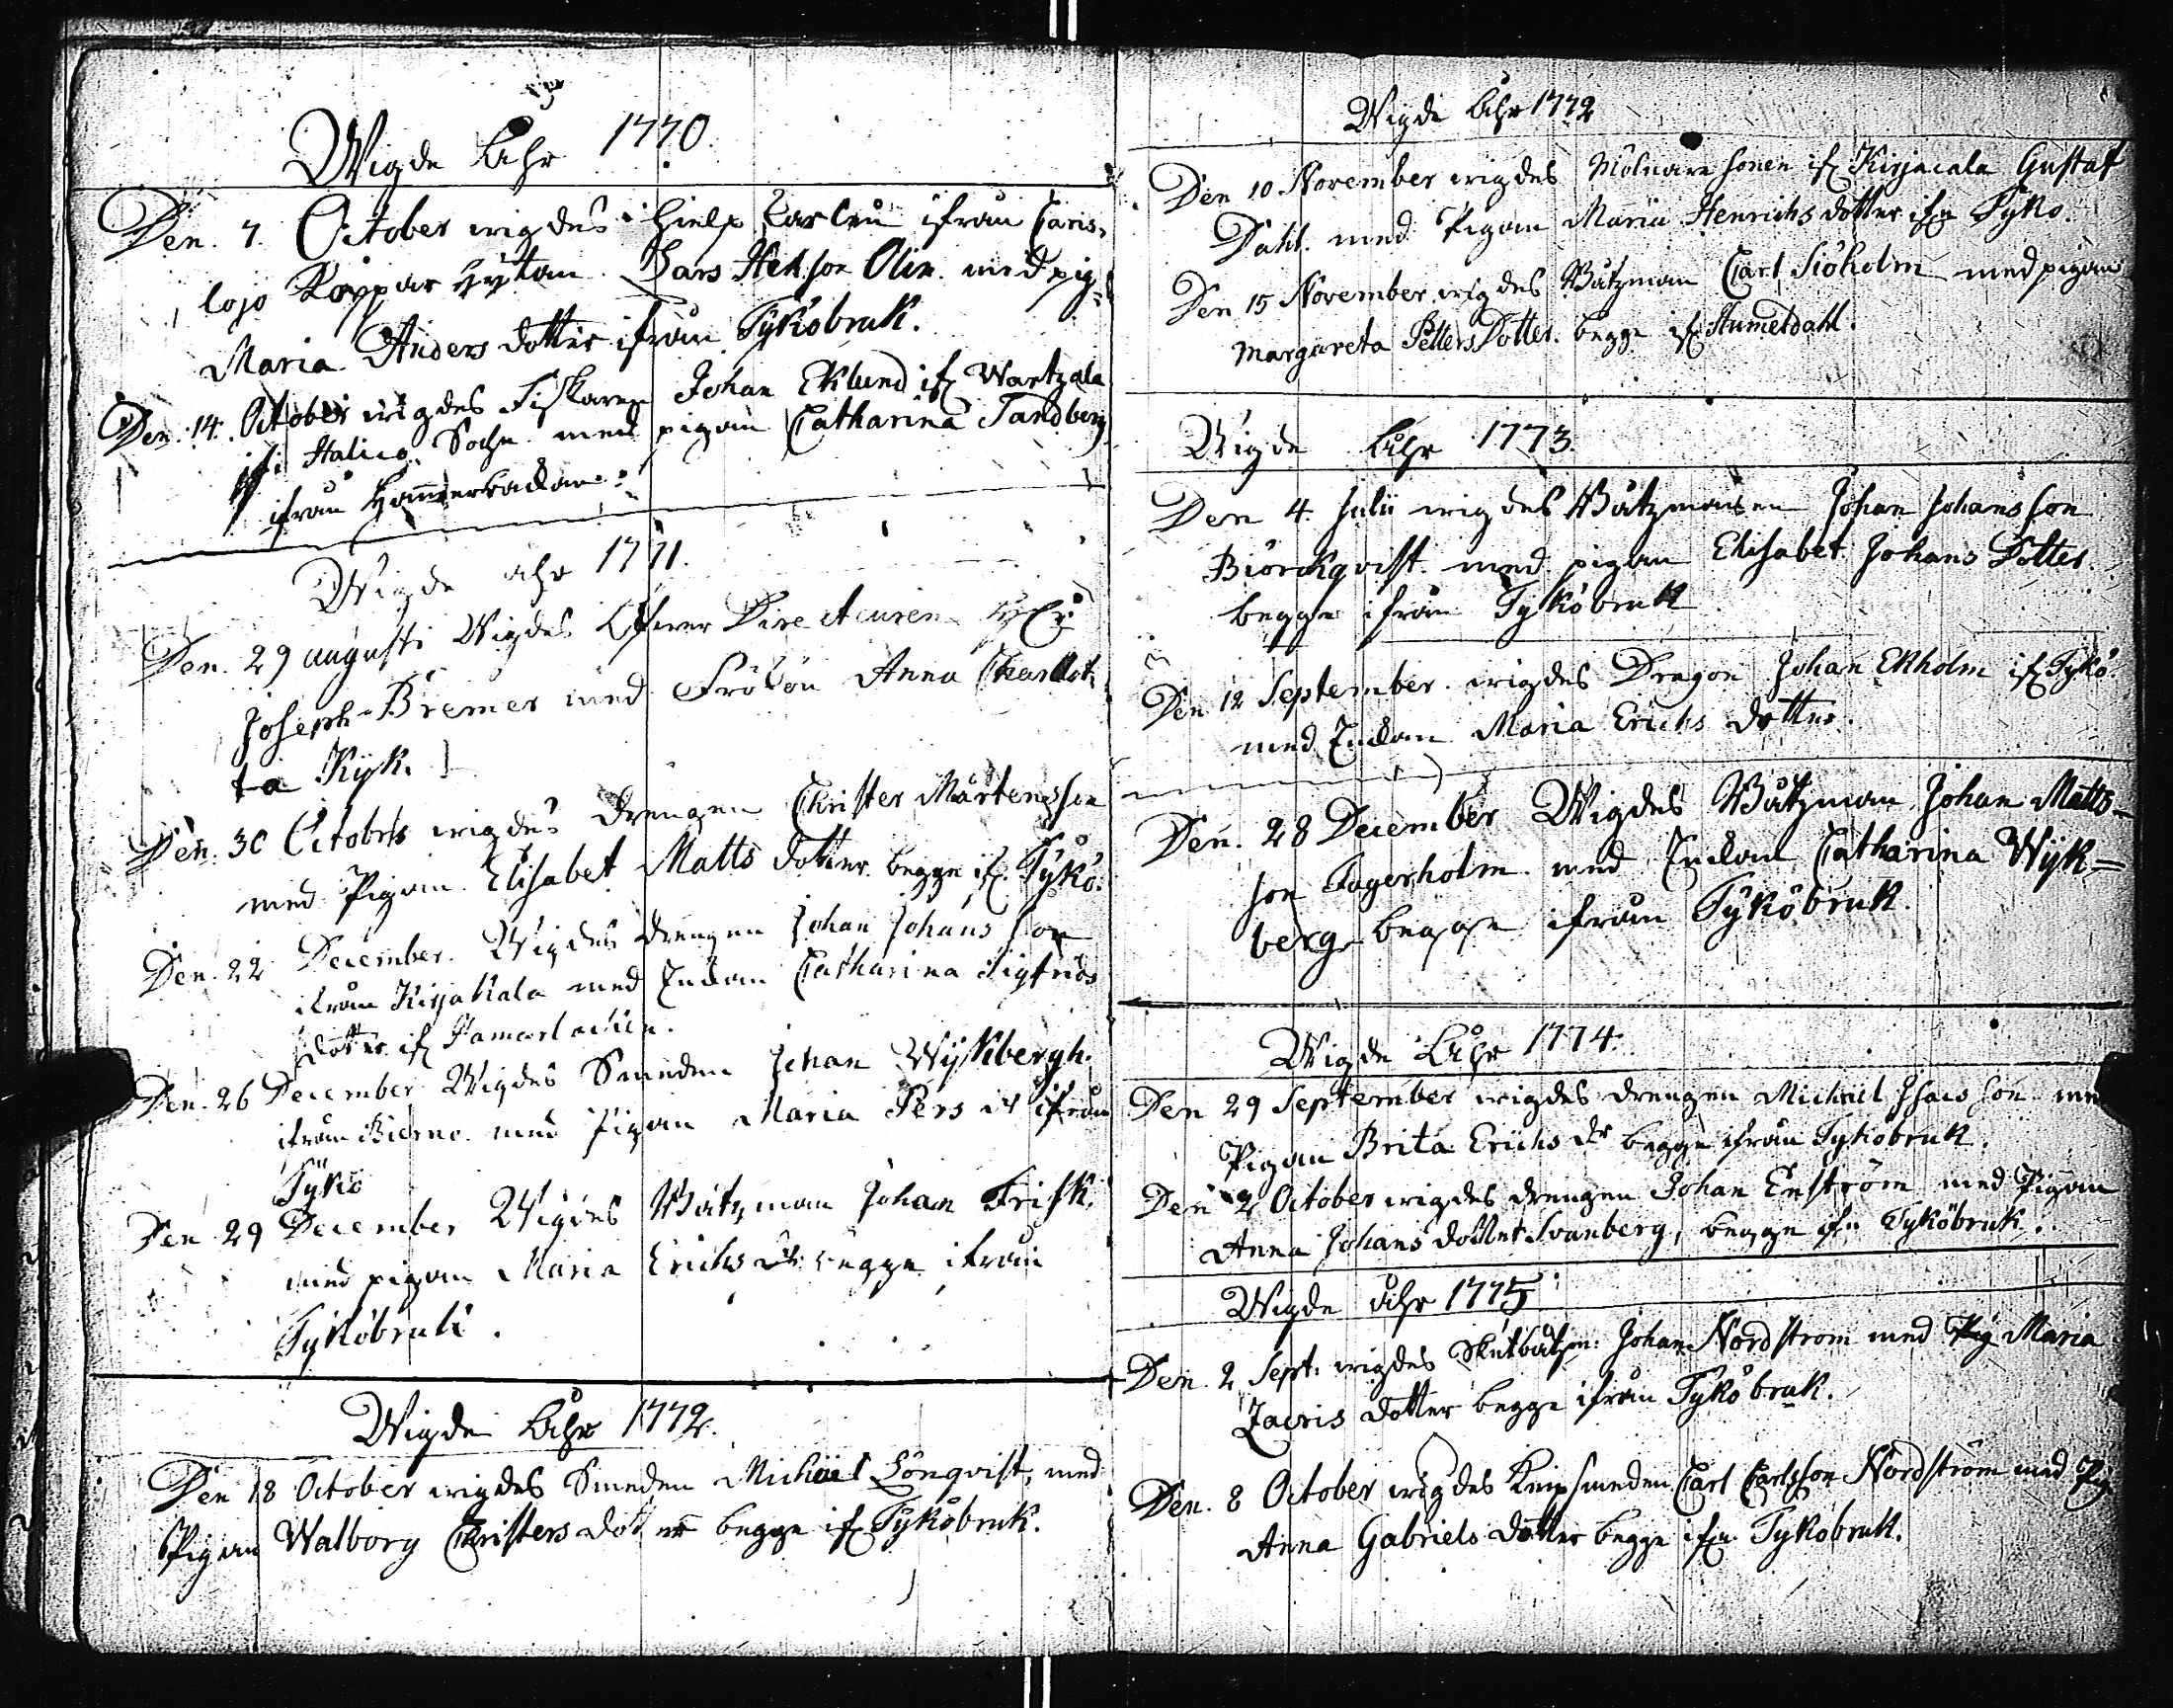 Wigde Åhr 1770.
Den. 7. October wigdes hielp Karlen ifrån Caris-
lojo Koppar Hyttan. Lars Hend:son Olin. med pig:
Maria Anders dotter ifrån Tykobruk.
Den. 14. October wigdes Fiskaren Johan Eklund if Wartzala
i Halico Sochn med pigan Catharina Sandberg
ifrån Hammarbackan.
Wigde åhr 1771.
Den. 29 augusti Wigdes Öfwer Directeuren H:Er
Joseph Bremer med Fröken Anna Charlot-
ta Kijk.
Den. 30 Octobris wigdes drengen Christer Mårtensson
med Pigan Elisabet Matts dotter begge if. Tyko.
Den. 22 December. Wigdes drengen Johan Johans son
ifrån Kirjakala med Enckan Catharina Sigfrids
dotter if
Den. 26 December Wigdes Smeden Johan Wijkbergh.
ifrån Bierno med Pigan Maria Pers dr ifrån
Tyko
Den 29 December Wigdes Båtzman Johan Frisk.
med pigan Maria Erichs dr. begge ifrån
Tykobruk.
Wigde Åhr 1772.
Den 18 October wigdes Smeden Michael Lönqvist, med
Pigan Walborg Christers dotter begge if Tykobruk.
Wigde Åhr 1772
Den 10 November wigdes Molnare sonen if Kirjacala Gustaf
Dahl. med Pigan Maria Henrichs dotter ifn Tyko.
Den 15 November wigdes Båtzman Carl Siöholm med pigan
Margareta Petters Dotter. begge if Humeldahl.
Wigde Åhr 1773.
Den 4. Julii wigdes Båtzmannen Johan Johansson
Biörckqvist. med pigan Elisabet Johans Dotter.
begge ifrån Tykobruk
Den 12 September. wigdes Dragon Johan Ekholm if Tyko
med Enckan Maria Erichs dotter.
Den. 28 December Wigdes Båtzman Johan Matts-
son Fagerholm med Enckan Catharina Wijk=
berg begge ifrån Tykobruk.
Wigde Åhr 1774.
Den 29 September wigdes drengen Michael Isacs son med
Pigan Brita Erichs dr begge ifrån Tykobruk.
Den 2 October wigdes drengen Johan Enström med Pigan
Anna Johans dotter Svanberg, begge ifn Tykobruk.
Wigde åhr 1775
Den. 2 Sept: wigdes Skutbåtzm: Johan Nordstrom med Pig Maria
Zacris dotter begge ifrån Tykobruk.
Den. 8 October wigdes Knipsmeden Carl Carlsson Nordström med Pig
Anna Gabriels dotter begge ifn Tykobruk.